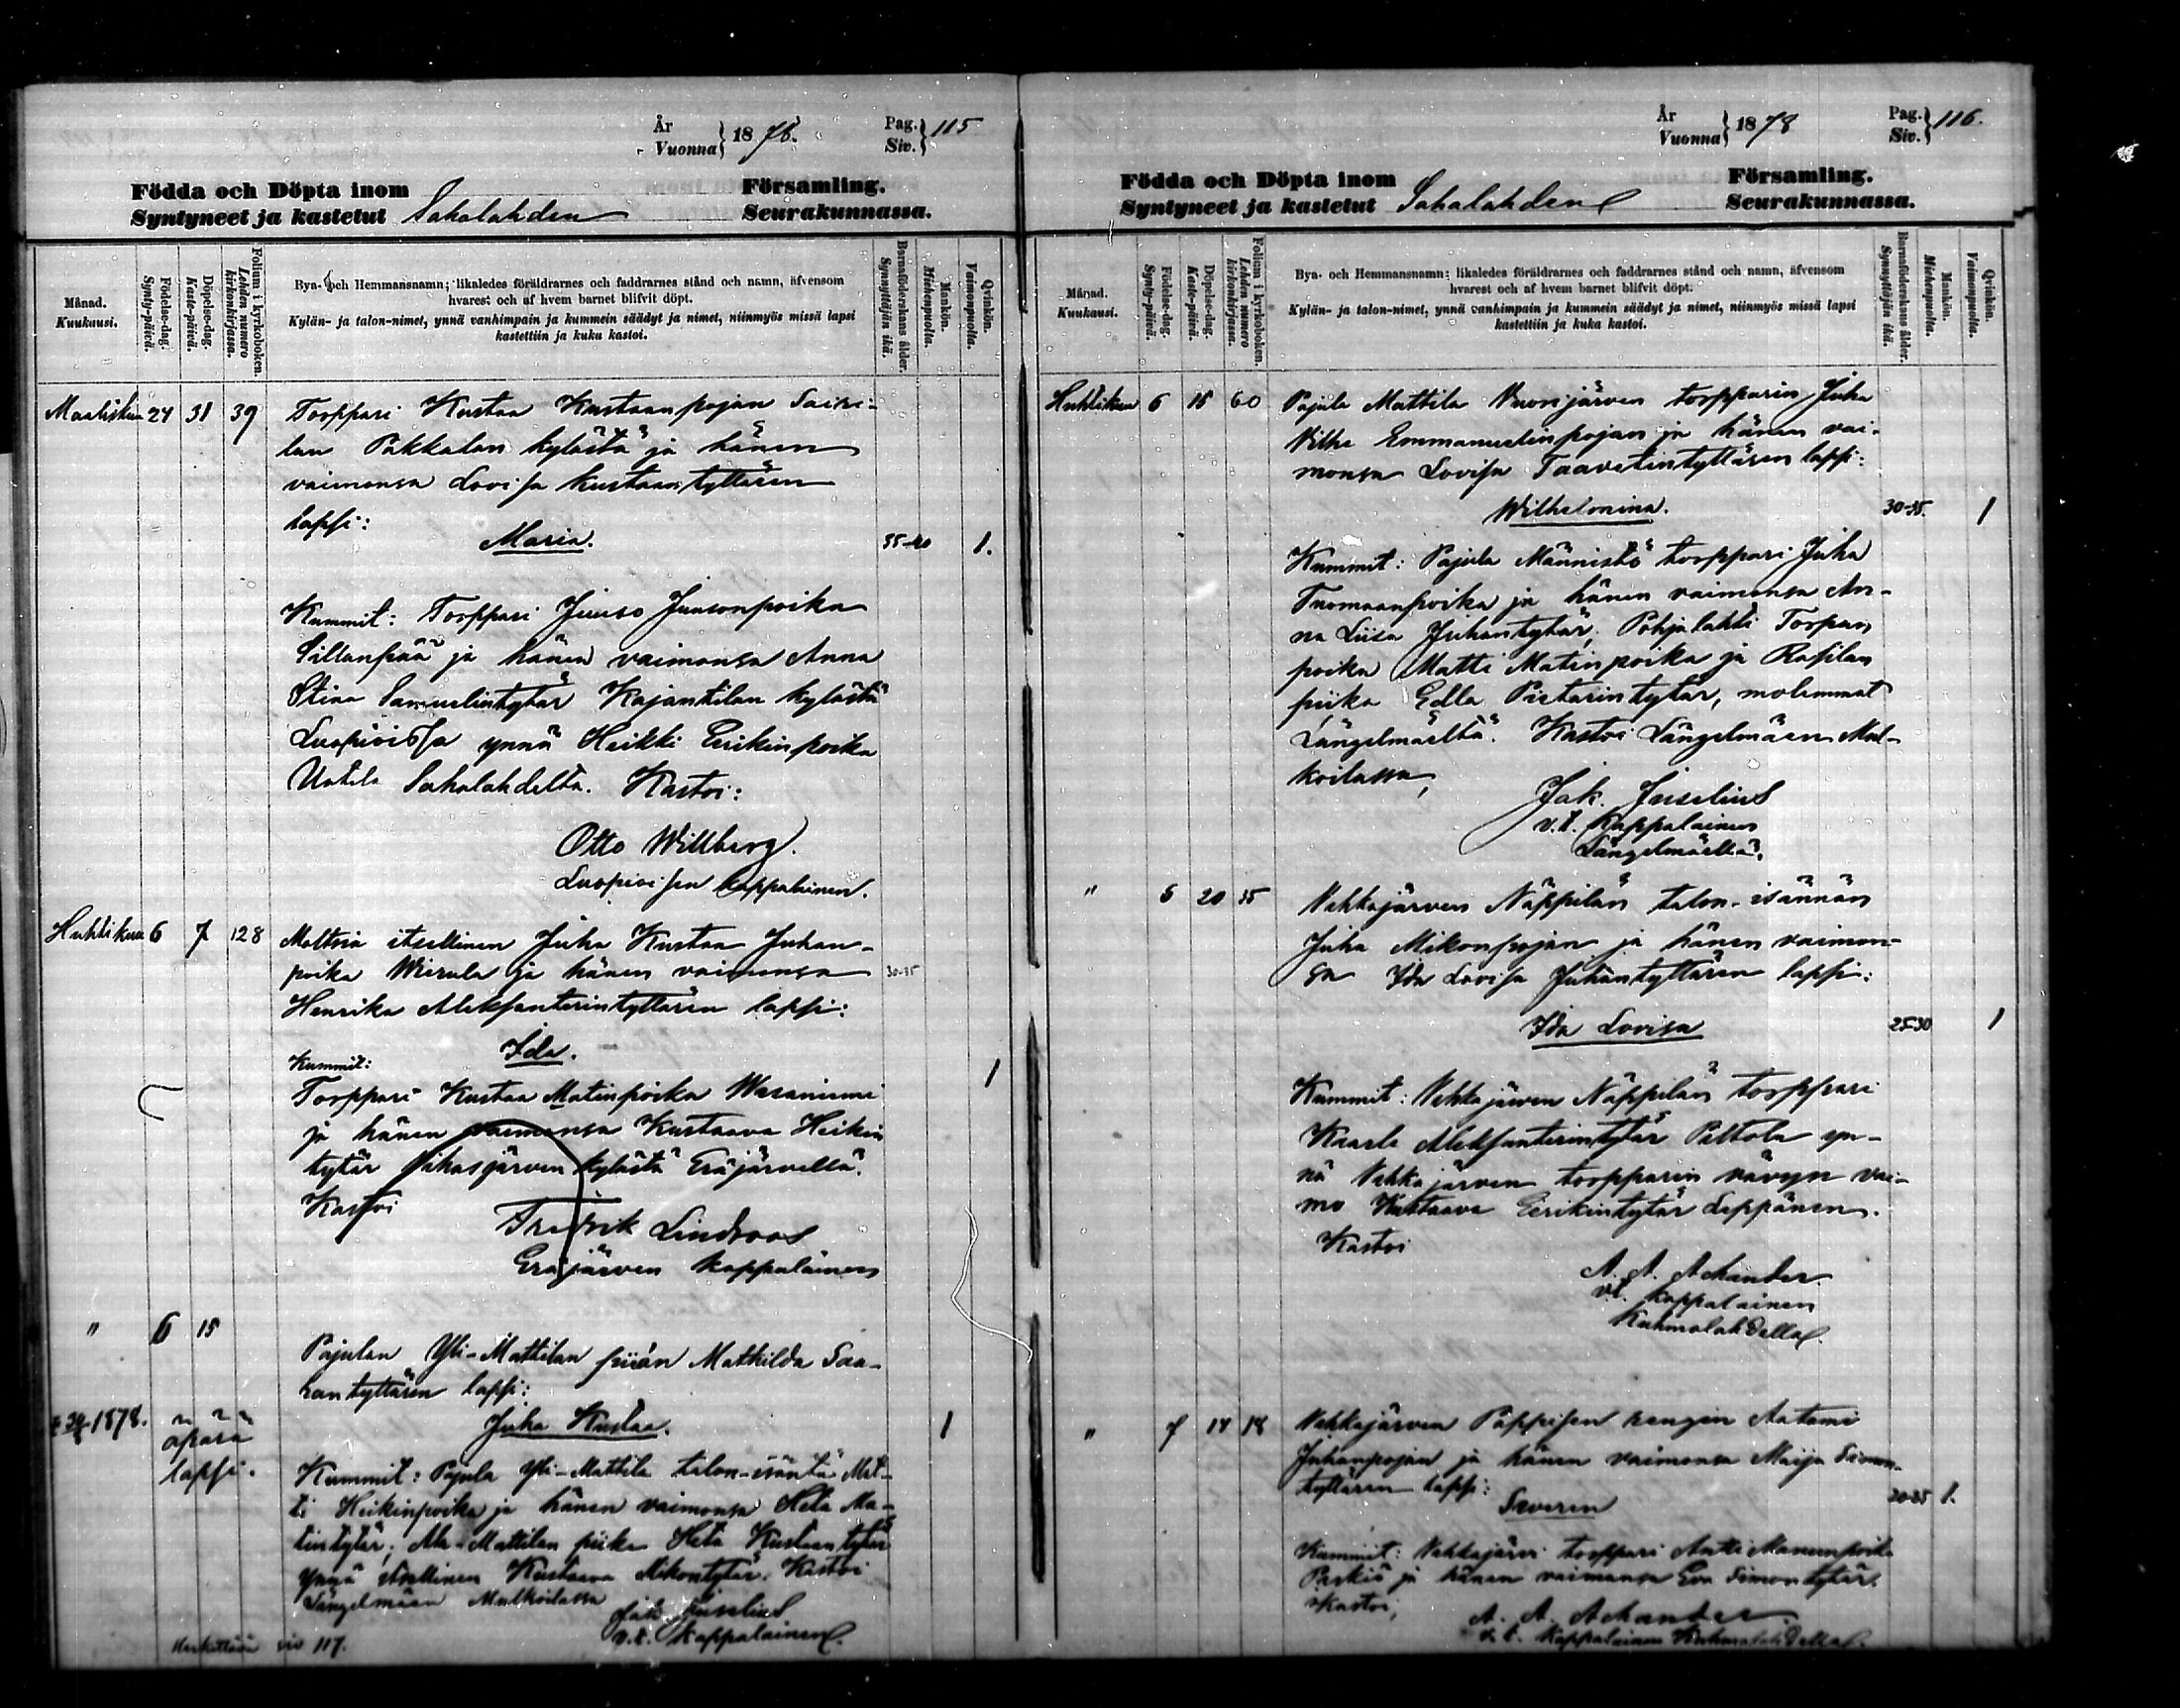 År
Vuonna } 1878.
Pag.
Siv. } 115
Födda och Döpta inom Församling.
Syntyneet ja kastetut Sahalahden Seurakunnassa.
Månad.
Kuukausi.
Födelse-dag.
Synty-päivä.
Döpelse-dag.
Kaste-päivä.
Folium i kyrkoboken.
Lehden numero
kirkonkirjassa.
Bya- och Hemmansnamn; likaledes föräldrarnes och faddrarnes stånd och namn, äfvensom
hvarest och af hvem barnet blifvit döpt.
Kylän- ja talon-nimet, ynnä vanhimpain ja kummein säädyt ja nimet, niinmyös missä lapsi
kastettiin ja kuka kastoi.
Barnaföderskans ålder.
Synnyttäjän ikä.
Mankön.
Miehenpuolta.
Qvinkön.
Vaimonpuolta.
Maaliskuu 24 31 39 Torppari Kustaa Kustaanpojan Saini-
lan Pakkalan kylästä ja hänen
vaimonsa Lovisa Kustaantyttären
lapsi:
Maria. 35-40 1.
Kummit: Torppari Juuso Juusonpoika
Sillanpää ja hänen vaimonsa Anna
Stina Samuelintytär Kajantilan kylästä
Luopioissa ynnä Heikki Erikinpoika
Uotila Sahalahdelta. Kastoi:
Otto Willberg.
Luopioisen kappalainen.
Huhtikuu 6 7 128 Moltsia itsellinen Juha Kustaa Juhan-
poika Wierula ja hänen vaimonsa 30-35
Henrika Aleksanterintyttären lapsi:
Ida.
Kummit: 1
Torppari Kustaa Matinpoika Wasaniemi
ja hänen vaimonsa Kustaava Heikin
tytär Vihasjärven kylästä Eräjärvellä.
Kastoi
Fredrik Lindroos
Eräjärven kappalainen
" 6 15
Pajulan Yli-Mattilan piian Mathilda Saa-
rantyttären lapsi:
1878. äpärä
lapsi.
Juha Kustaa. 1
Kummit: Pajula Yli-Mattila talon-isäntä Mat-
ti Heikinpoika ja hänen vaimonsa Heta Ma-
tintytär; Ala-Mattilan piika Heta Kustaantytär
ynnä itsellinen Kustaava Mikontytär. Kastoi
Längelmäen Malkoilassa Jak. Juselius
v.t. Kappalainen.
siv 117.
År
Vuonna } 1878
Pag.
Siv. } 116.
Födda och Döpta inom Församling.
Syntyneet ja kastetut Sahalahden Seurakunnassa.
Månad.
Kuukausi.
Födelse-dag.
Synty-päivä.
Döpelse-dag.
Kaste-päivä.
Folium i kyrkoboken.
Lehden numero
kirkonkirjassa.
Bya- och Hemmansnamn; likaledes föräldrarnes och faddrarnes stånd och namn, äfvensom
hvarest och af hvem barnet blifvit döpt.
Kylän- ja talon-nimet, ynnä vanhimpain ja kummein säädyt ja nimet, niinmyös missä lapsi
kastettiin ja kuka kastoi.
Barnaföderskans ålder.
Synnyttäjän ikä.
Mankön.
Miehenpuolta.
Qvinkön.
Vaimonpuolta.
Huhtikuu 6 15 60 Pajula Mattila Vuorijärven torpparin Juha
Vilhe Emmanuelinpojan ja hänen vai-
monsa Lovisa Taavetintyttären lapsi:
Wilhelmina. 30-35. 1
Kummit: Pajula Männistö torppari Juha
Tuomaanpoika ja hänen vaimonsa An-
na Liisa Juhantytär, Pohjalahti Torpan
poika Matti Matinpoika ja Rasilan
piika Edla Pietarintytär, molemmat
Längelmäeltä. Kastoi Längelmäen Mal-
koilassa,
Jak. Juselius
v.t. Kappalainen
Längelmäellä.
" 6 20 35 Vehkajärven Näppilän talon-isännän
Juha Mikonpojan ja hänen vaimon-
sa Ida Lovisa Juhantyttären lapsi:
Ida Lovisa 25-30 1
Kummit: Vehkajärven Näppilän torppari
Kaarle Aleksanterintytär Peltola yn-
nä Vehkajärven torpparin vävyn vai-
mo Kustaava Eerikintytär Leppänen.
Kastoi
A. A. Achander.
vt. kappalainen
Kuhmalahdella.
" 7 14 18 Vehkajärven Pappisen rengin Aatami
Juhanpojan ja hänen vaimonsa Maija Simon-
tyttären lapsi:
Severin 30-35 1.
Kummit: Vehkajärvi torppari Antti Manunpoika
Parkis ja hänen vaimonsa Eva Simontytär.
Kastoi,
A. A. Achander.
v.t. kappalainen Kuhmalahdella.